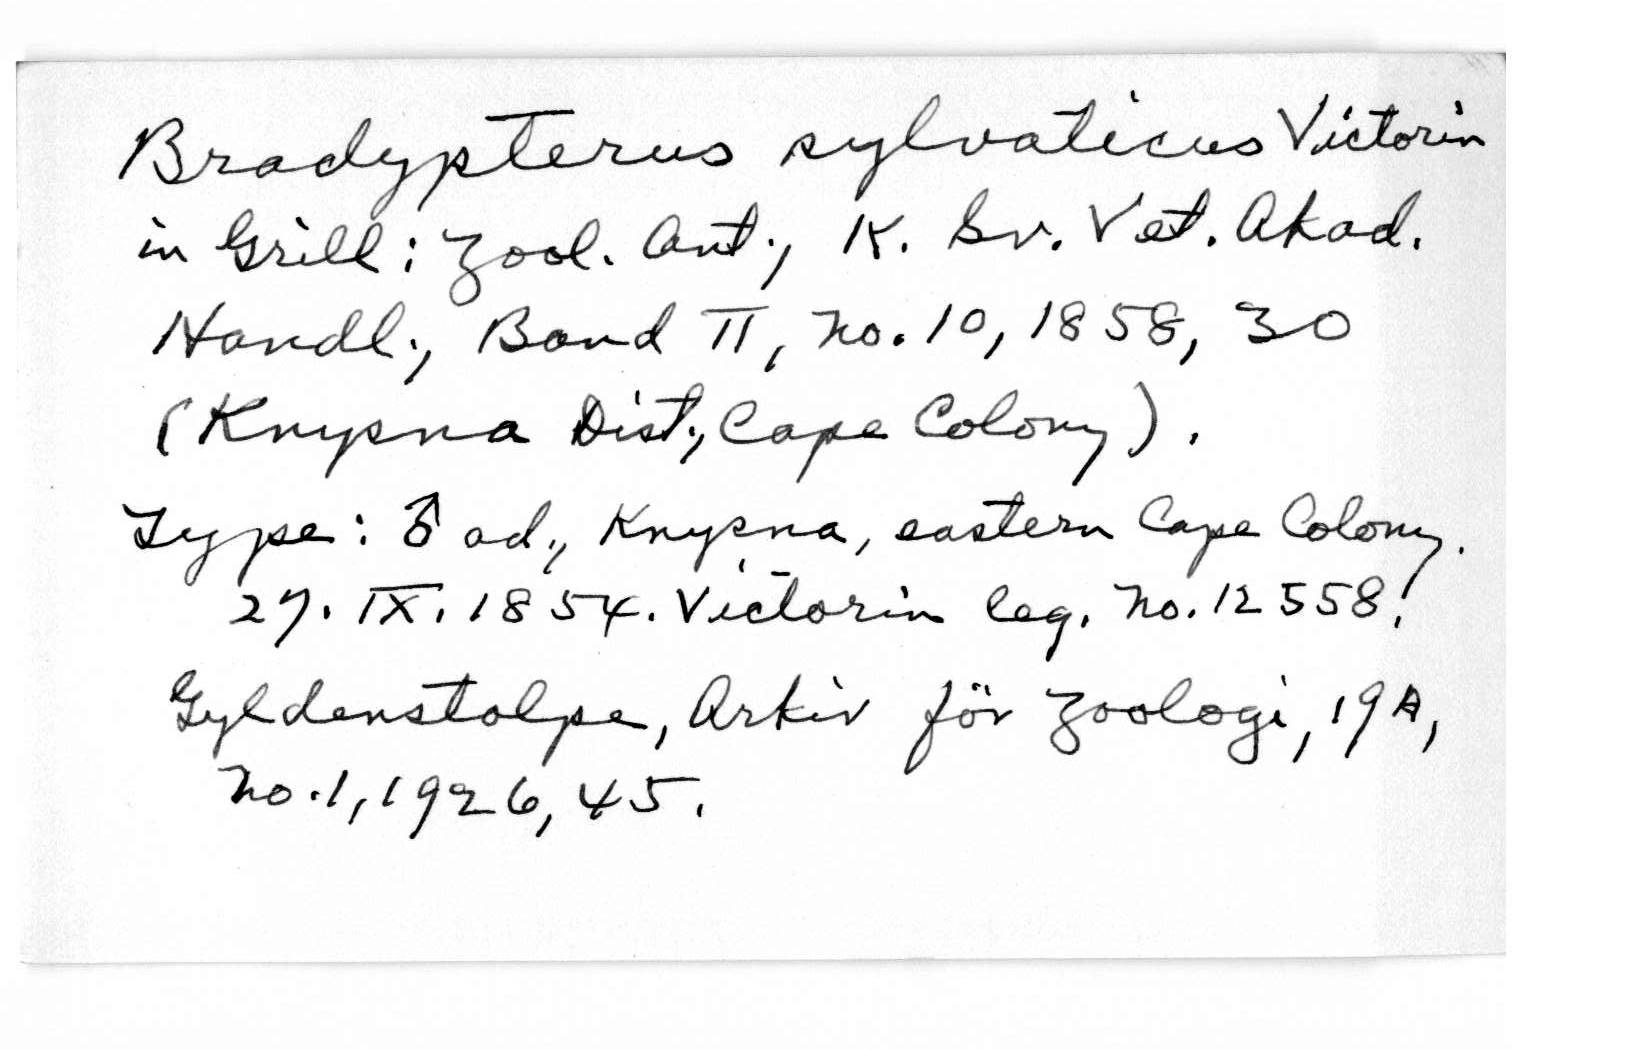 Bradypterus sylvaticus Victorin
in Grill: Zool. Ant., K. Sv. Vet. Akad.
Handl., Band II, no. 10, 1858, 30
(Knysna Dist., Cape Colony).
Type: ♂ ad., Knysna, eastern Cape Colony.
27. IX. 1854. Victorin leg. no. 12558!
Gyldenstolpe, Arkiv för Zoologi, 19A,
no. 1, 1926, 45.